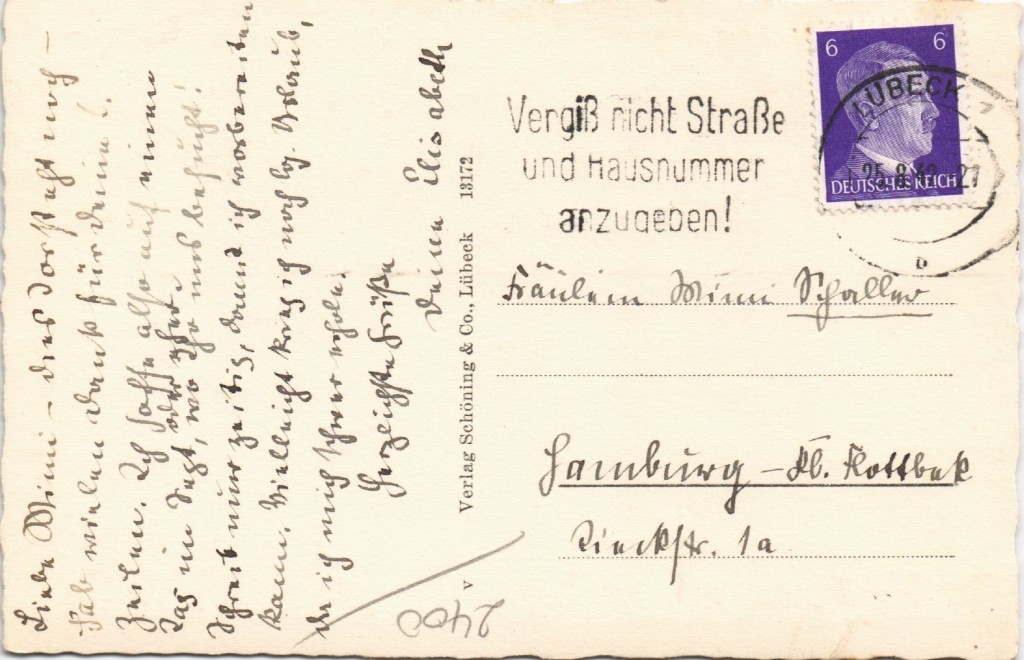 Liebe Mimi – dies Dorf steht noch –
Hab vielen Dank für Deine l.
Zeilen. Ich hoffe also auf einen
Tag im Sept, wo Ihr uns besucht!
oder eher
Schreib nur zeitig, damit ich vorbereiten
kann. Vielleicht krieg ich noch Urlaub,
da ich mich schwer erhole.
Herzlichste Grüße
Deine Elisabeth
Verlag Schöning & Co., Lübeck 13172
v
2400
Vergiß nicht Straße
und Hausnummer
anzugeben!
6 6
DEUTSCHES REICH
LÜBECK
25.8.42.-21
b
Fräulein Mimi Schaller
Hamburg – Kl. Flottbek
Rieckstr. 1a